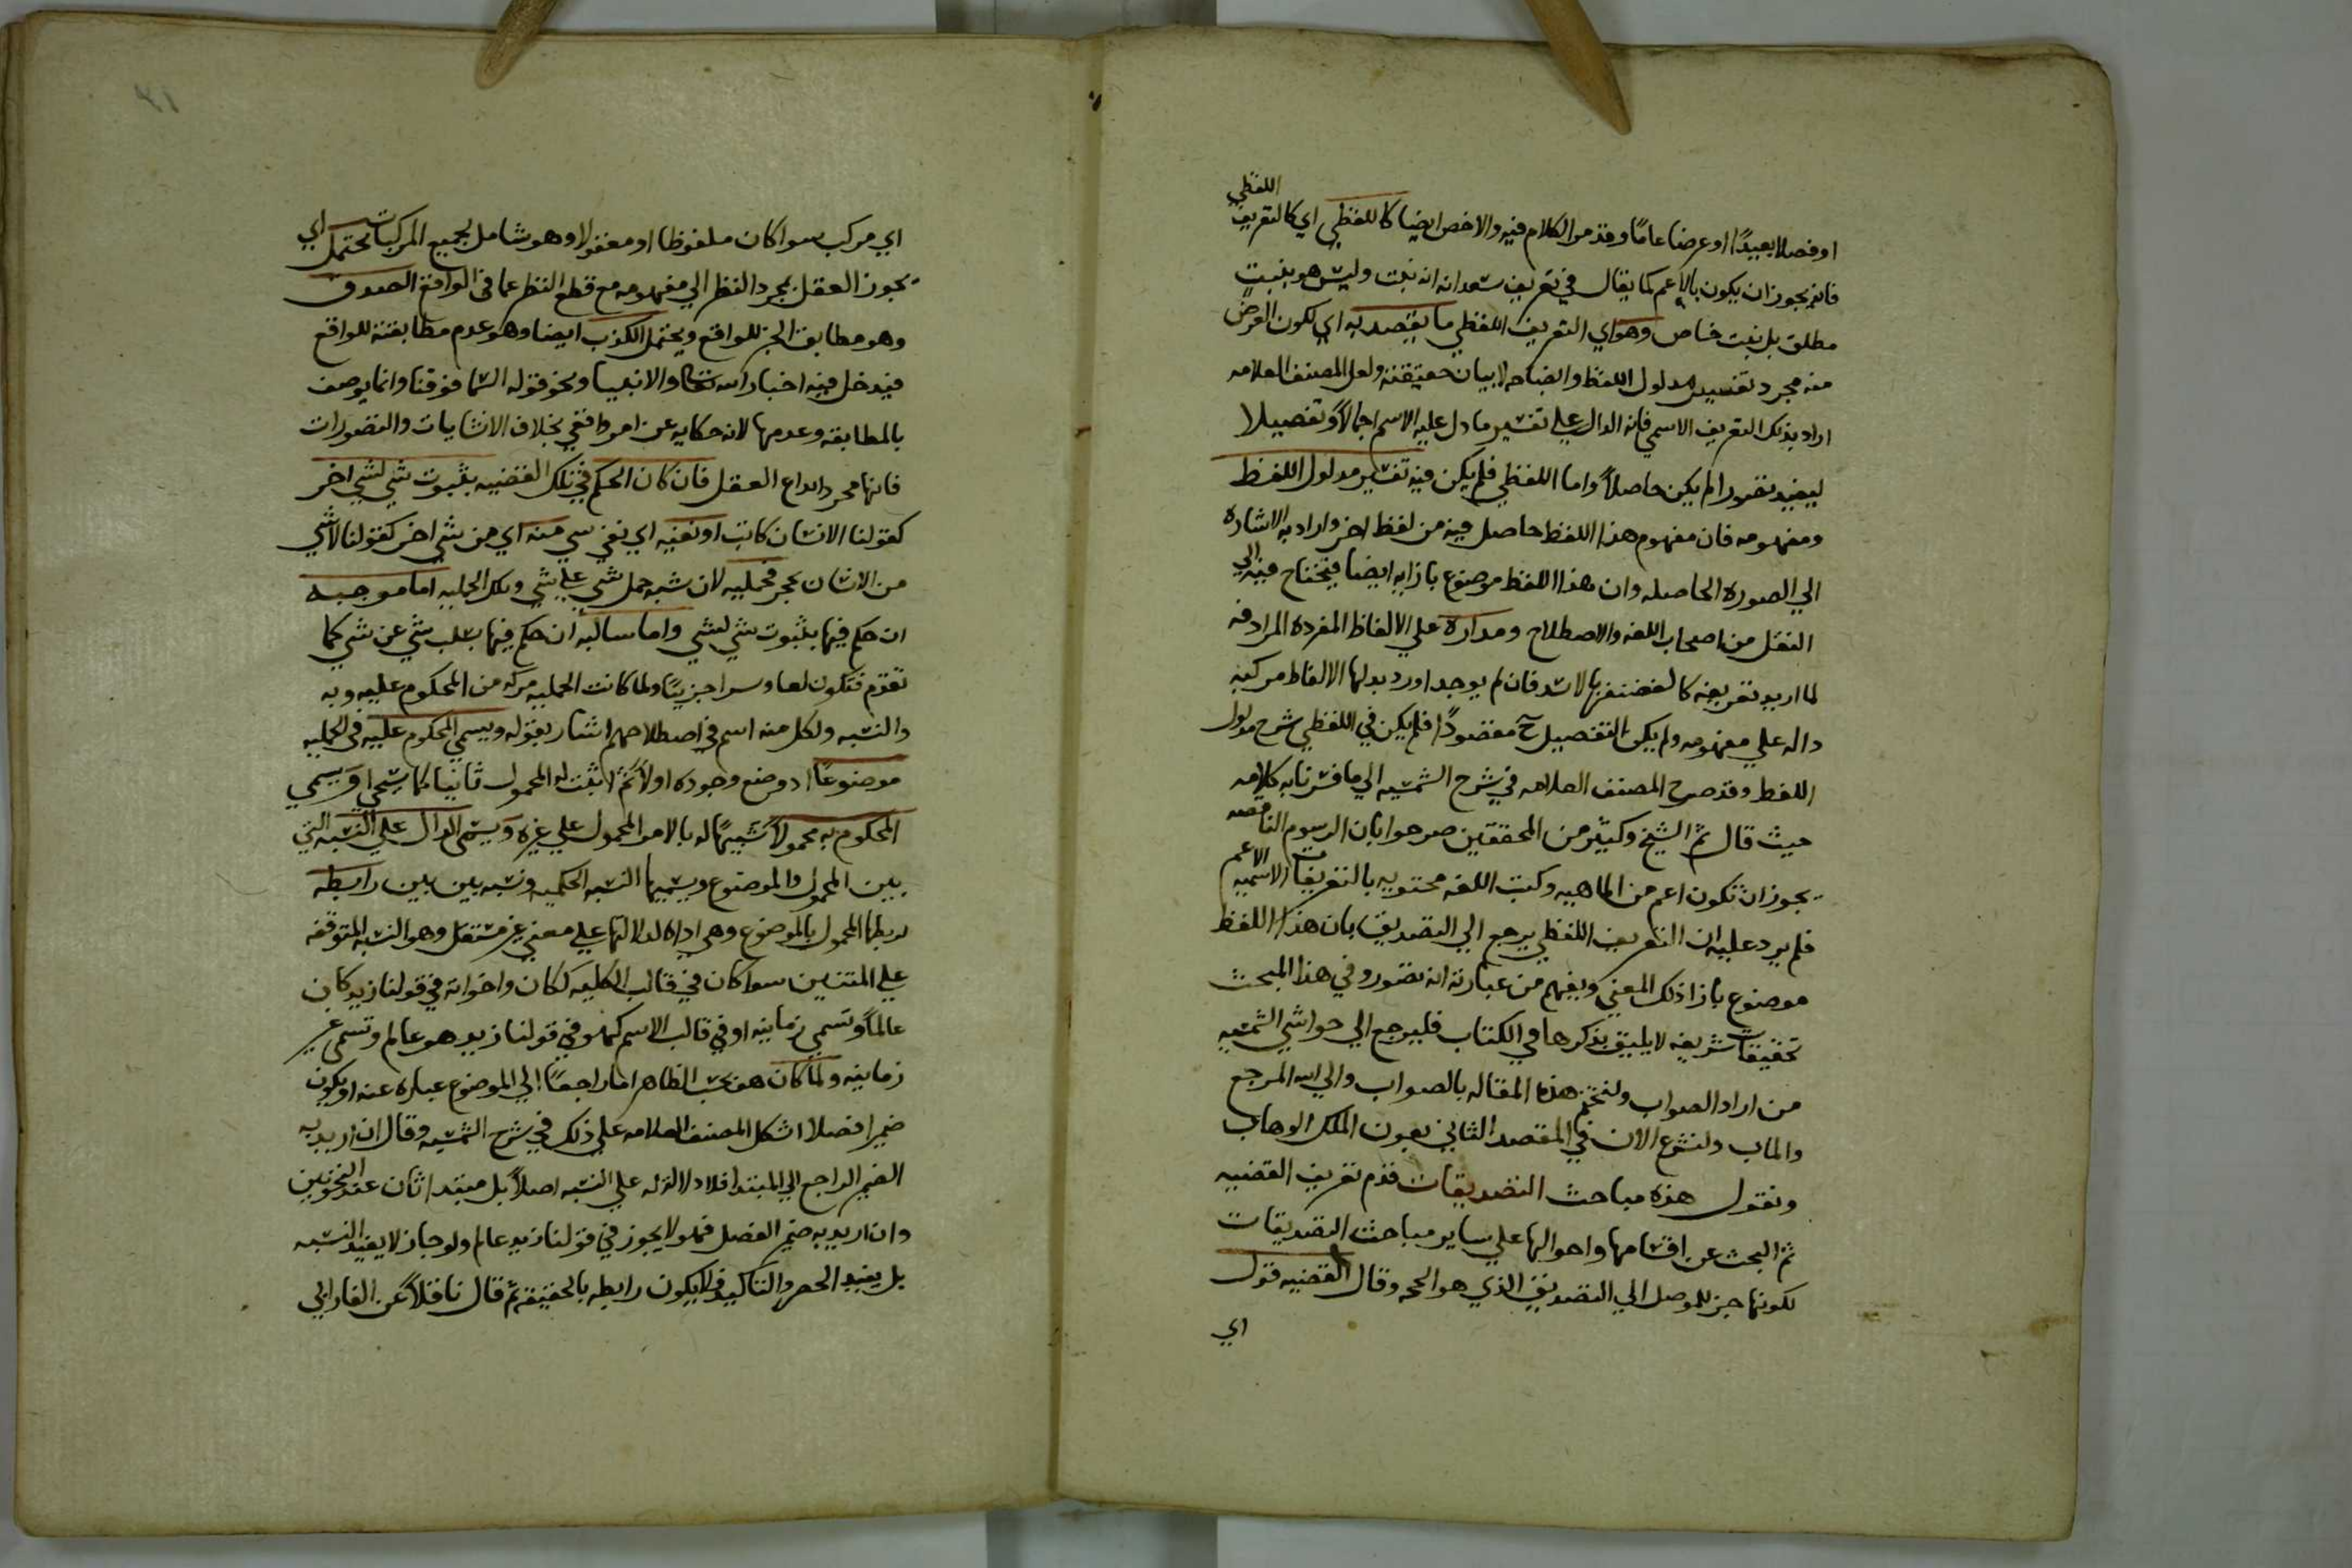 اللفظي
او فصلا بعيدًا او عرضا عامًا وقد مر الكلام فيه والاخص ايضا كاللفظي اي كالتعريف
فانه يجوز ان يكون بالاعم كما يقال في تعريف سعدانه انه نبت وليس هو بنبت
مطلق بل نبت خاص وهو اي التعريف اللفظي ما يقصد به اي لكون الغرض
منه مجرد تفسير مدلول اللفظ وايضاحه لا بيان حقيقته ولعل المصنف العلامه
اراد بذلك التعريف الاسمي فانه الدال علي تفسير ما دل عليه الاسم اجمالاً وتفصيلا
ليفيد تصورا لم يكن حاصلاً واما اللفظي فلم يكن فيه تفسير مدلول اللفظ
ومفهومه فان مفهوم هذا اللفظ حاصل فيه من لفظ اخر واراد به الاشاره
الي الصوره الحاصله وان هذا اللفظ موضوع بازايه ايضا فيحتاج فيه الي
النقل من اصحاب اللغه والاصطلاح ومداره علي الالفاظ المفرده المرادفه
لما اريد تعريفه كالغضنفر بالاسد فان لم يوجد اورد بدلها الالفاظ مركبه
داله علي مفهومه ولم يكن التفصيل ح مقصودًا فلم يكن في اللفظي شرح مدلول
اللفظ وقد صرح المصنف العلامه في شرح الشمسيه الي ما فسرنا به كلامه
حيث قال ثم الشيخ وكثير من المحققين صرحوا بان الرسوم الناقصه
يجوز ان تكون اعم من الماهيه وكتب اللغه محتويه بالتعريفات الاسميه الاعم
فلم يرد عليه ان التعريف اللفظي يرجع الي التصديق بان هذا اللفظ
موضوع بازا ذلك المعني ويفهم من عبارته انه تصور وفي هذا المبحث
تحقيقات شريفه لا يليق بذكرها في الكتاب فليرجع الي حواشي الشمسيه
من اراد الصواب ولنختم هذه المقاله بالصواب والي الله المرجع
والماب ولنشرع الان في المقصد الثاني بعون الملك الوهاب
ونقول هذه مباحث التصديقات قدم تعريف القضيه
ثم البحث عن اقسامها واحوالها علي ساير مباحث التصديقات
لكونها جز للموصل الي التصديق الذي هو الحجه وقال القضيه قول
اي
٤١
اي مركب سوا كان ملفوظا او معقولا وهو شامل لجميع المركبات يحتمل اي
يجوز العقل بمجرد النظر الي مفهومه مع قطع النظر عما في الواقع الصدق
وهو مطابقه الخبر للواقع ويحتمل الكذب ايضا وهو عدم مطابقته للواقع
فيدخل فيه اخبار الله تعالى والانبيا ونحو قوله السما فوقنا وانما يوصف
بالمطابقه وعدمها لانه حكايه عن امر واقعي بخلاف الانشاييات والتصورات
فانها مجرد ابداع العقل فان كان الحكم في تلك القضيه بثبوت شي لشي اخر
كقولنا الانسان كاتب او نفيه اي نفي شي منه اي من شي اخر كقولنا لا شي
من الانسان بحجر فحمليه لان شبه حمل شي علي شي وتلك الحمليه اما موجبه
ان حكم فيها بثبوت شي لشي واما سالبه ان حكم فيها بسلب شي عن شي كما
تقدم فتكون لها اجزيتًا ولما كانت الحمليه مركبه من المحكوم عليه وبه
والنسبه ولكل منه اسم في اصطلاحهم اشار بقوله ويسمي المحكوم عليه في الحمليه
موضوعًا اذ وضع وجوده اولاً ثم اثبت له المحمول ثانيا كما ستجي او ويسمي
المحكوم به محمولاً تشبيهًا له بالامر المحمول علي غيره ويسمي الدال علي النسبه التي
بين المحمول والموضوع ويسميها النسبه الحكميه ونسبه بين بين رابطه
لربطها المحمول بالموضوع وهي اداه لدلالتها علي معني غير مستقل وهو النسبه المتوقفه
علي المنتسبين سوا كان في قالب الكلمه ككان واخواته في قولنا زيد كان
عالماً وتسمي زمانيه او في قالب الاسم كهو في قولنا زيد هو عالم وتسمي غير
زمانيه ولما كان هو بحسب الظاهر اما راجعًا الي الموضوع عباره عنه او يكون
ضمير افضلا اشكل المصنف العلامه علي ذلك في شرح الشمسيه وقال ان اريد به
الضمير الراجع الي المبتدا فلا دلاله له علي النسبه اصلاً بل مبتدا ثان عند النحويين
وان اريد به ضمير الفصل فهو لا يجوز في قولنا زيد عالم ولو جاز لا يفيد النسبه
بل يفيد الحصر والتاكيد فلا يكون رابطه بالحقيقه ثم قال ناقلاً عن الفارابي